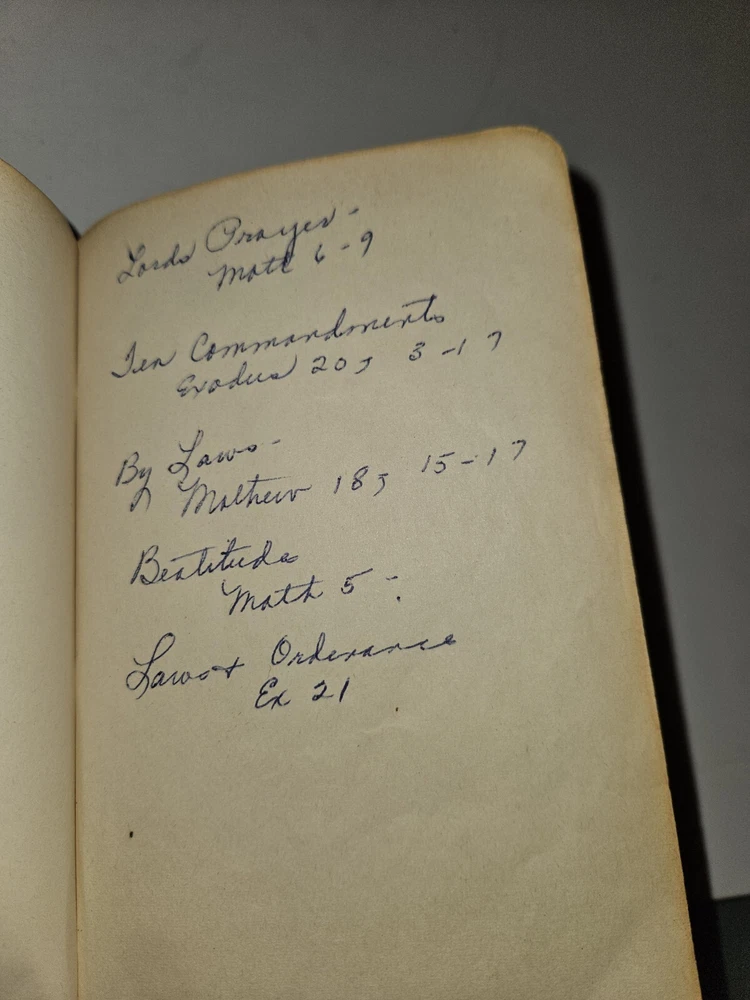 Lords Prayer -
Matt 6-9
Ten Commandments
Exodus 20, 3-17
By Laws -
Mathew 18, 15-17
Beatitude
Math 5 -
Laws + Ordenance
Ex 21